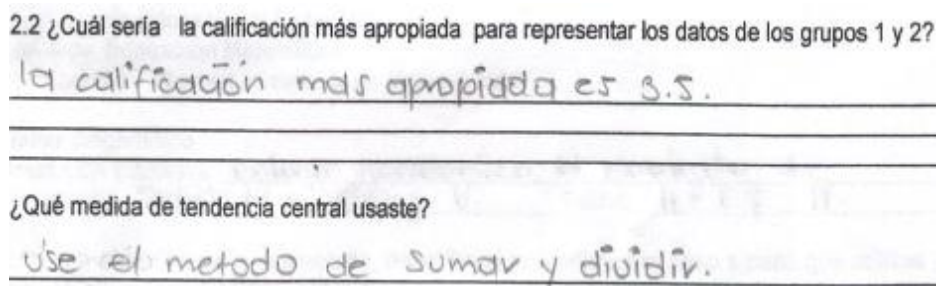 2.2 ¿Cuál sería la calificación más apropiada para representar los datos de los grupos 1 y 2?
la calificación mas apropiada es 3.5.
¿Qué medida de tendencia central usaste?
Use el metodo de sumar y dividir.